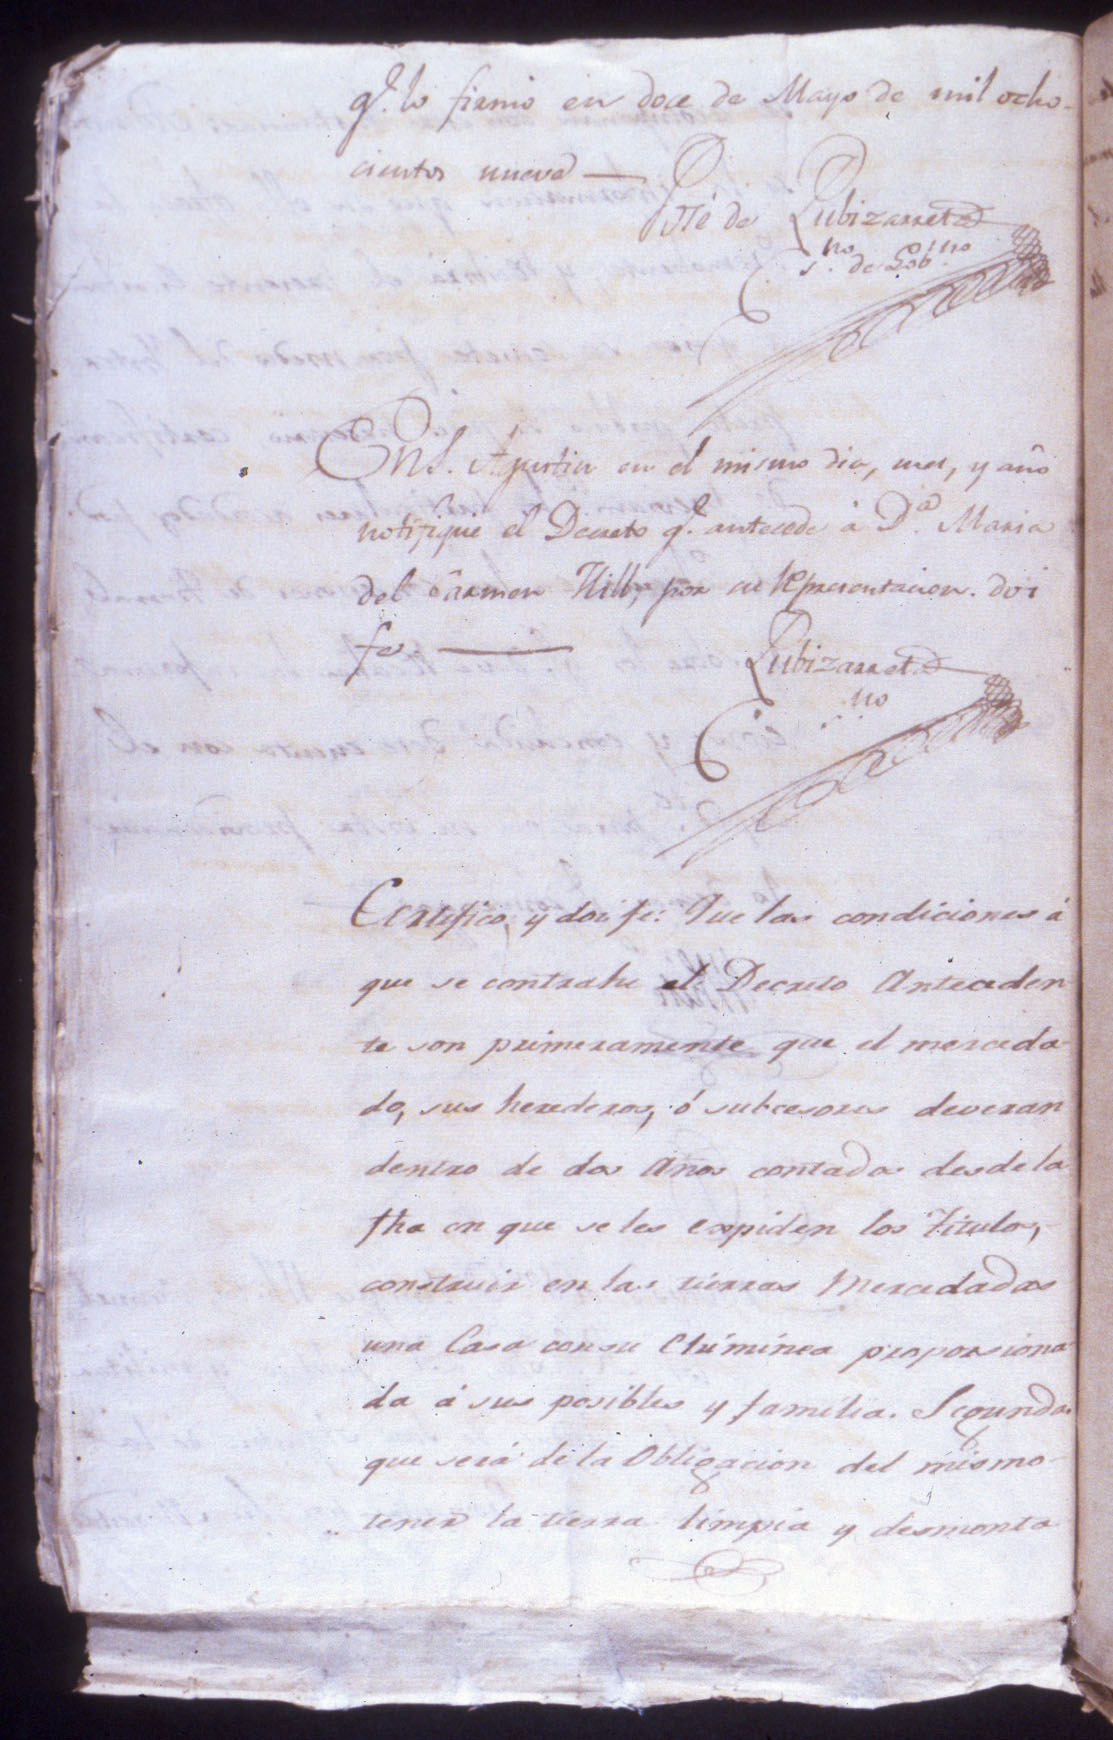 q.e lo firmó en doce de Mayo de mil ocho-
cientos nueve —
José de Zubizarreta
s.no de Gob.no
En S. Agustin en el mismo dia, mes, y año
notifiqué el Decreto q.e antecede á D.a Maria
del Carmen Hill, por su representacion. doi
fe. —
Zubizarreta
no
Certifico, y doi fe: Que las condiciones á
que se contrahe el Decreto Anteceden
te son primeramente que el merceda-
do, sus herederos, ó subcesores deveran
dentro de dos Años contados desde la
fha en que se les expiden los Titulos,
construir en las tierras Mercedadas
una Casa con su Chiminea proporsiona-
da á sus posibles y familia. Segunda.
que será de la Obligacion del mismo
tener la tierra limpia y desmonta